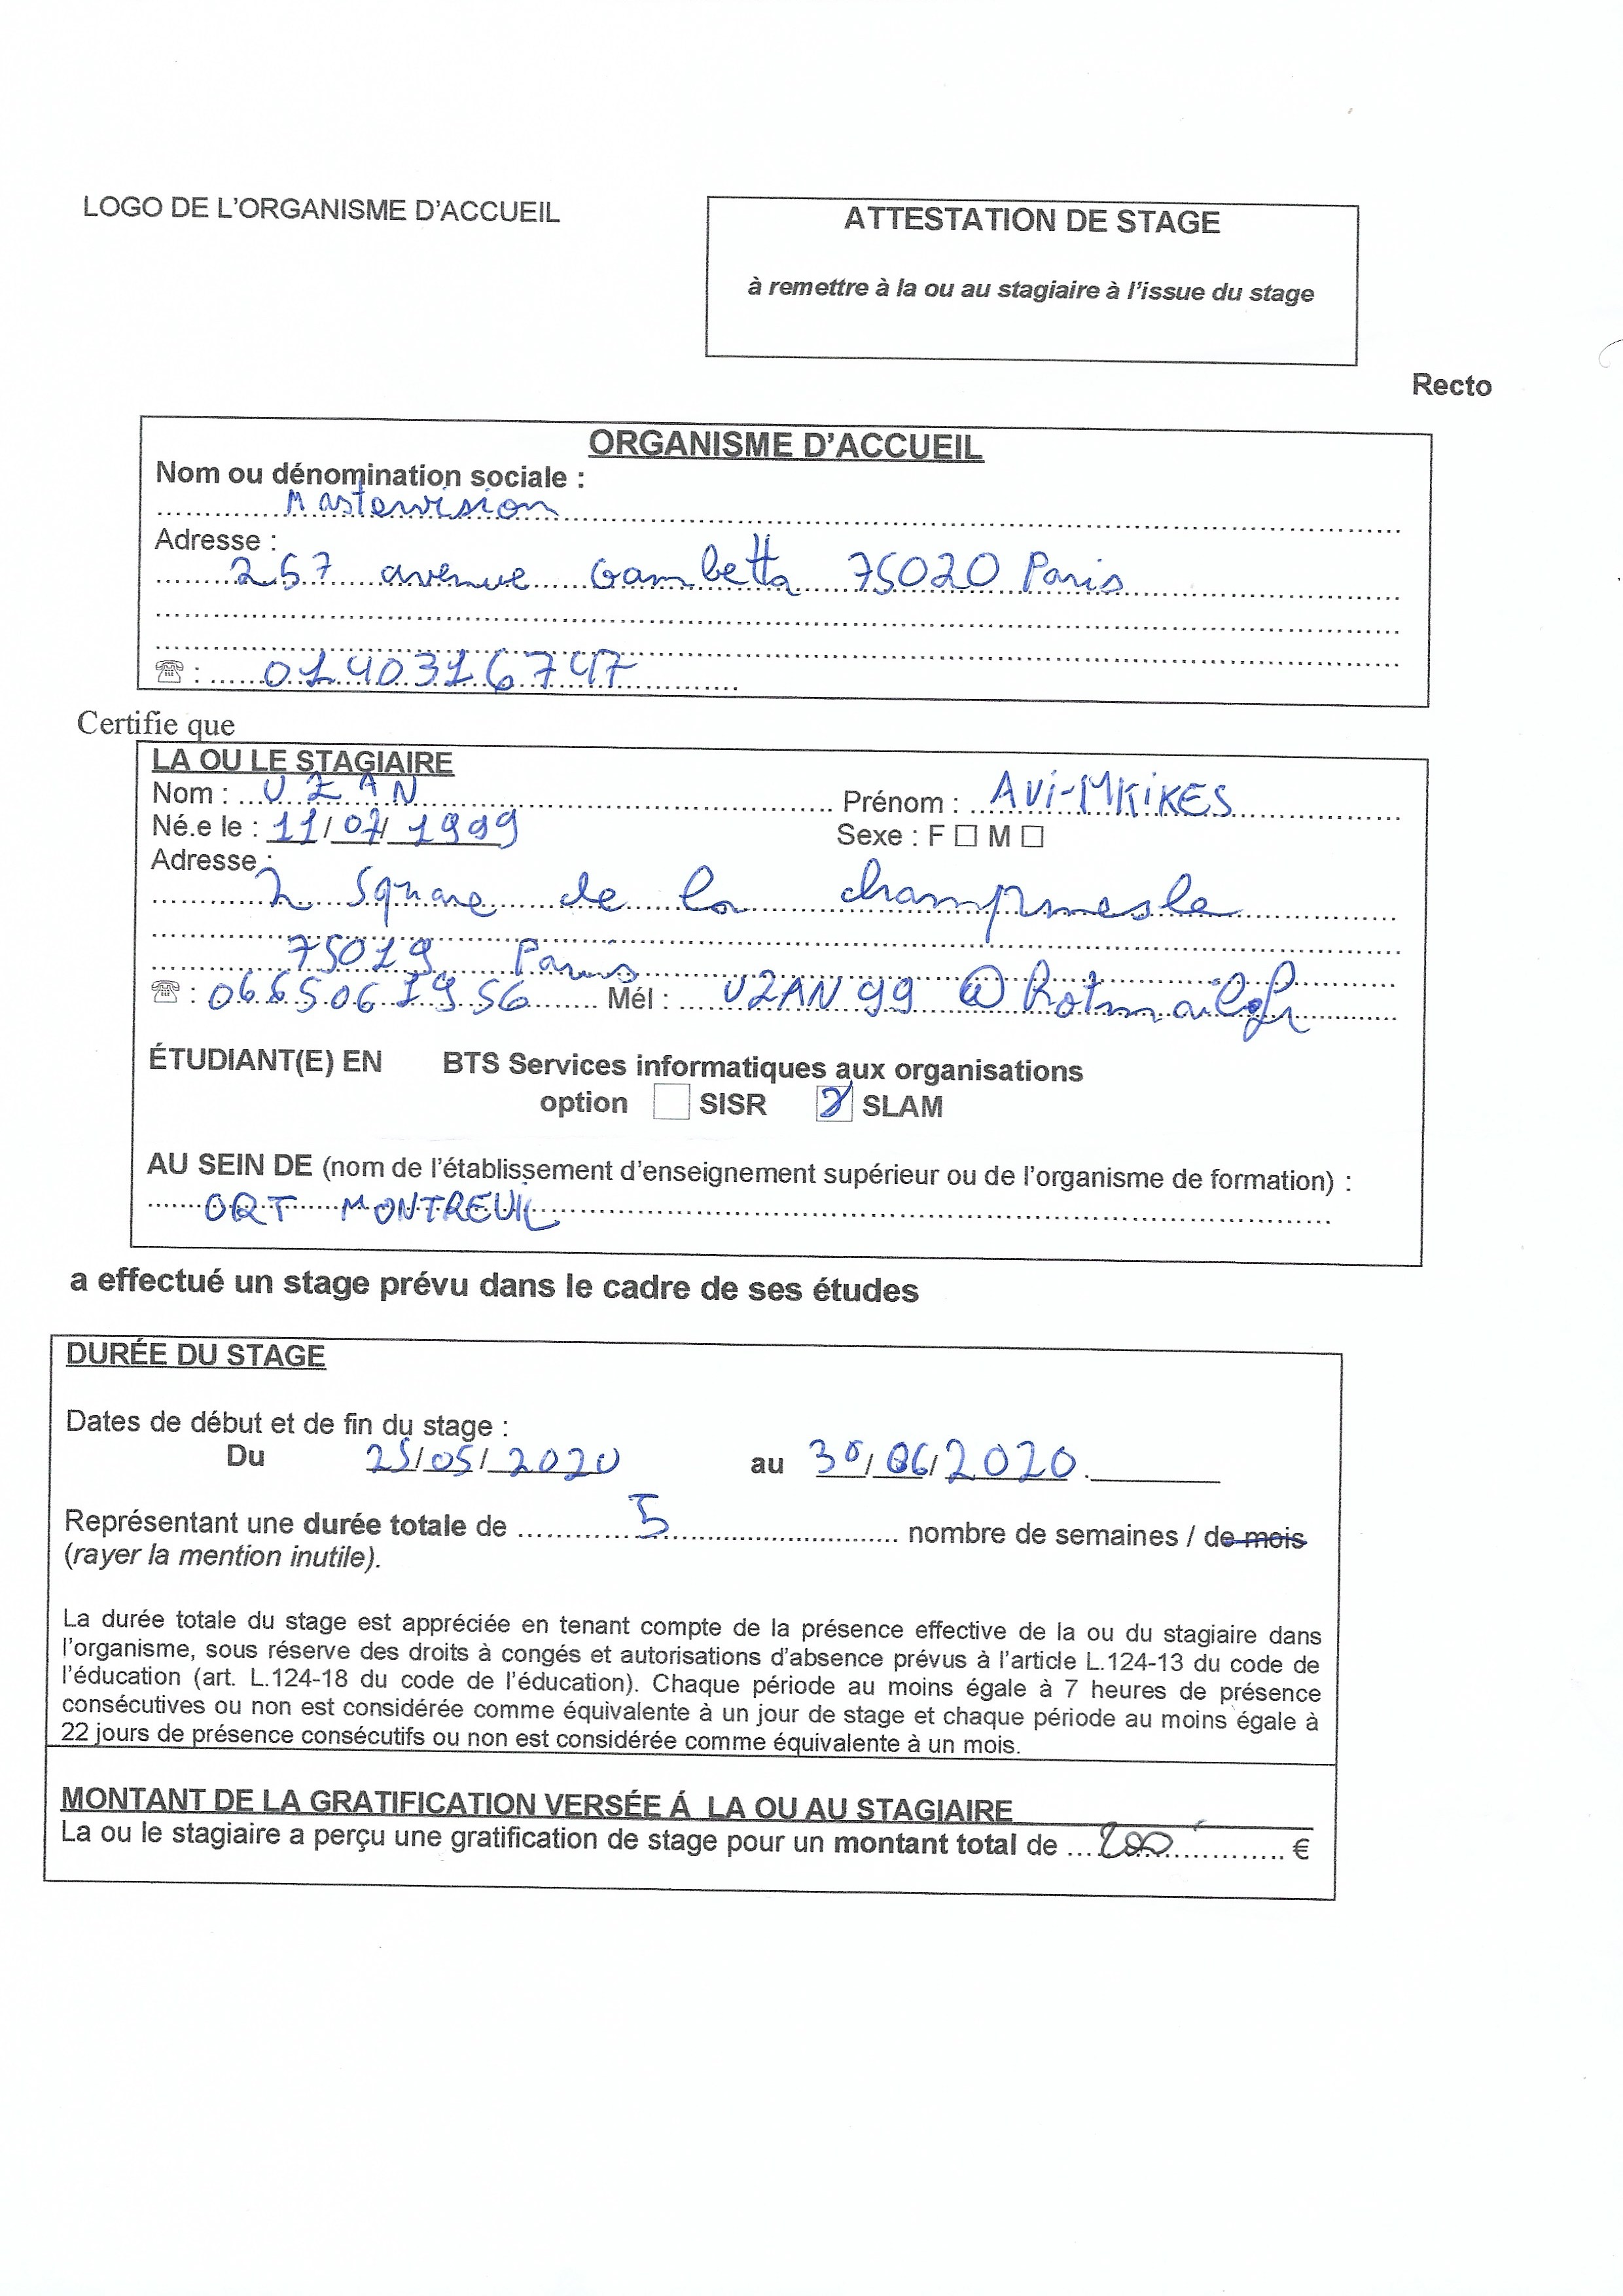 LOGO DE L'ORGANISME D'ACCUEIL
ATTESTATION DE STAGE
à remettre à la ou au stagiaire à l'issue du stage
Recto
ORGANISME D'ACCUEIL
Nom ou dénomination sociale :
Mastervision
Adresse :
257 avenue Gambetta 75020 Paris
☏ : 0140316747
Certifie que
LA OU LE STAGIAIRE
Nom : UZAN Prénom : AVI-MKIKES
Né.e le : 11/07/1999 Sexe : F ☐ M ☐
Adresse :
2 Square de la champmesle
75019 Paris
☏ : 0665061956 Mél : UZAN99@hotmail.fr
ÉTUDIANT(E) EN BTS Services informatiques aux organisations
option ☐ SISR ☒ SLAM
AU SEIN DE (nom de l'établissement d'enseignement supérieur ou de l'organisme de formation) :
ORT MONTREUIL
a effectué un stage prévu dans le cadre de ses études
DURÉE DU STAGE
Dates de début et de fin du stage :
Du 25/05/2020 au 30/06/2020
Représentant une durée totale de 5 nombre de semaines / de mois
(rayer la mention inutile).
La durée totale du stage est appréciée en tenant compte de la présence effective de la ou du stagiaire dans
l'organisme, sous réserve des droits à congés et autorisations d'absence prévus à l'article L.124-13 du code de
l'éducation (art. L.124-18 du code de l'éducation). Chaque période au moins égale à 7 heures de présence
consécutives ou non est considérée comme équivalente à un jour de stage et chaque période au moins égale à
22 jours de présence consécutifs ou non est considérée comme équivalente à un mois.
MONTANT DE LA GRATIFICATION VERSÉE Á LA OU AU STAGIAIRE
La ou le stagiaire a perçu une gratification de stage pour un montant total de 200 €